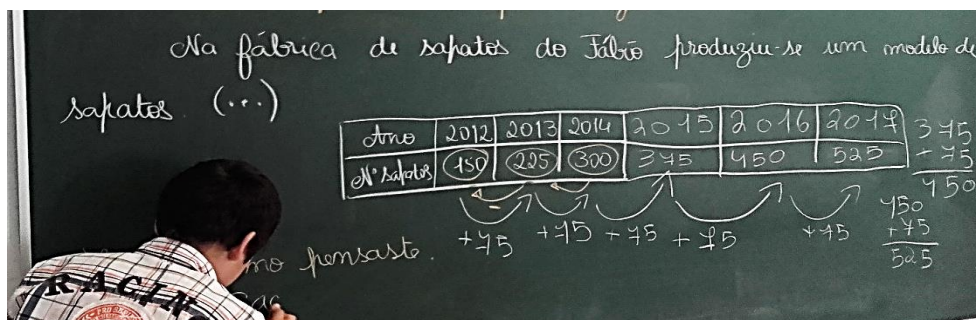 Na fábrica de sapatos do Fábio produziu-se um modelo de
sapatos (...)
Ano 2012 2013 2014 2015 2016 2017
Nº sapatos 150 225 300 375 450 525
+75 +75 +75 +75 +75
375
+75
450
450
+75
525
pensaste.
RACIN